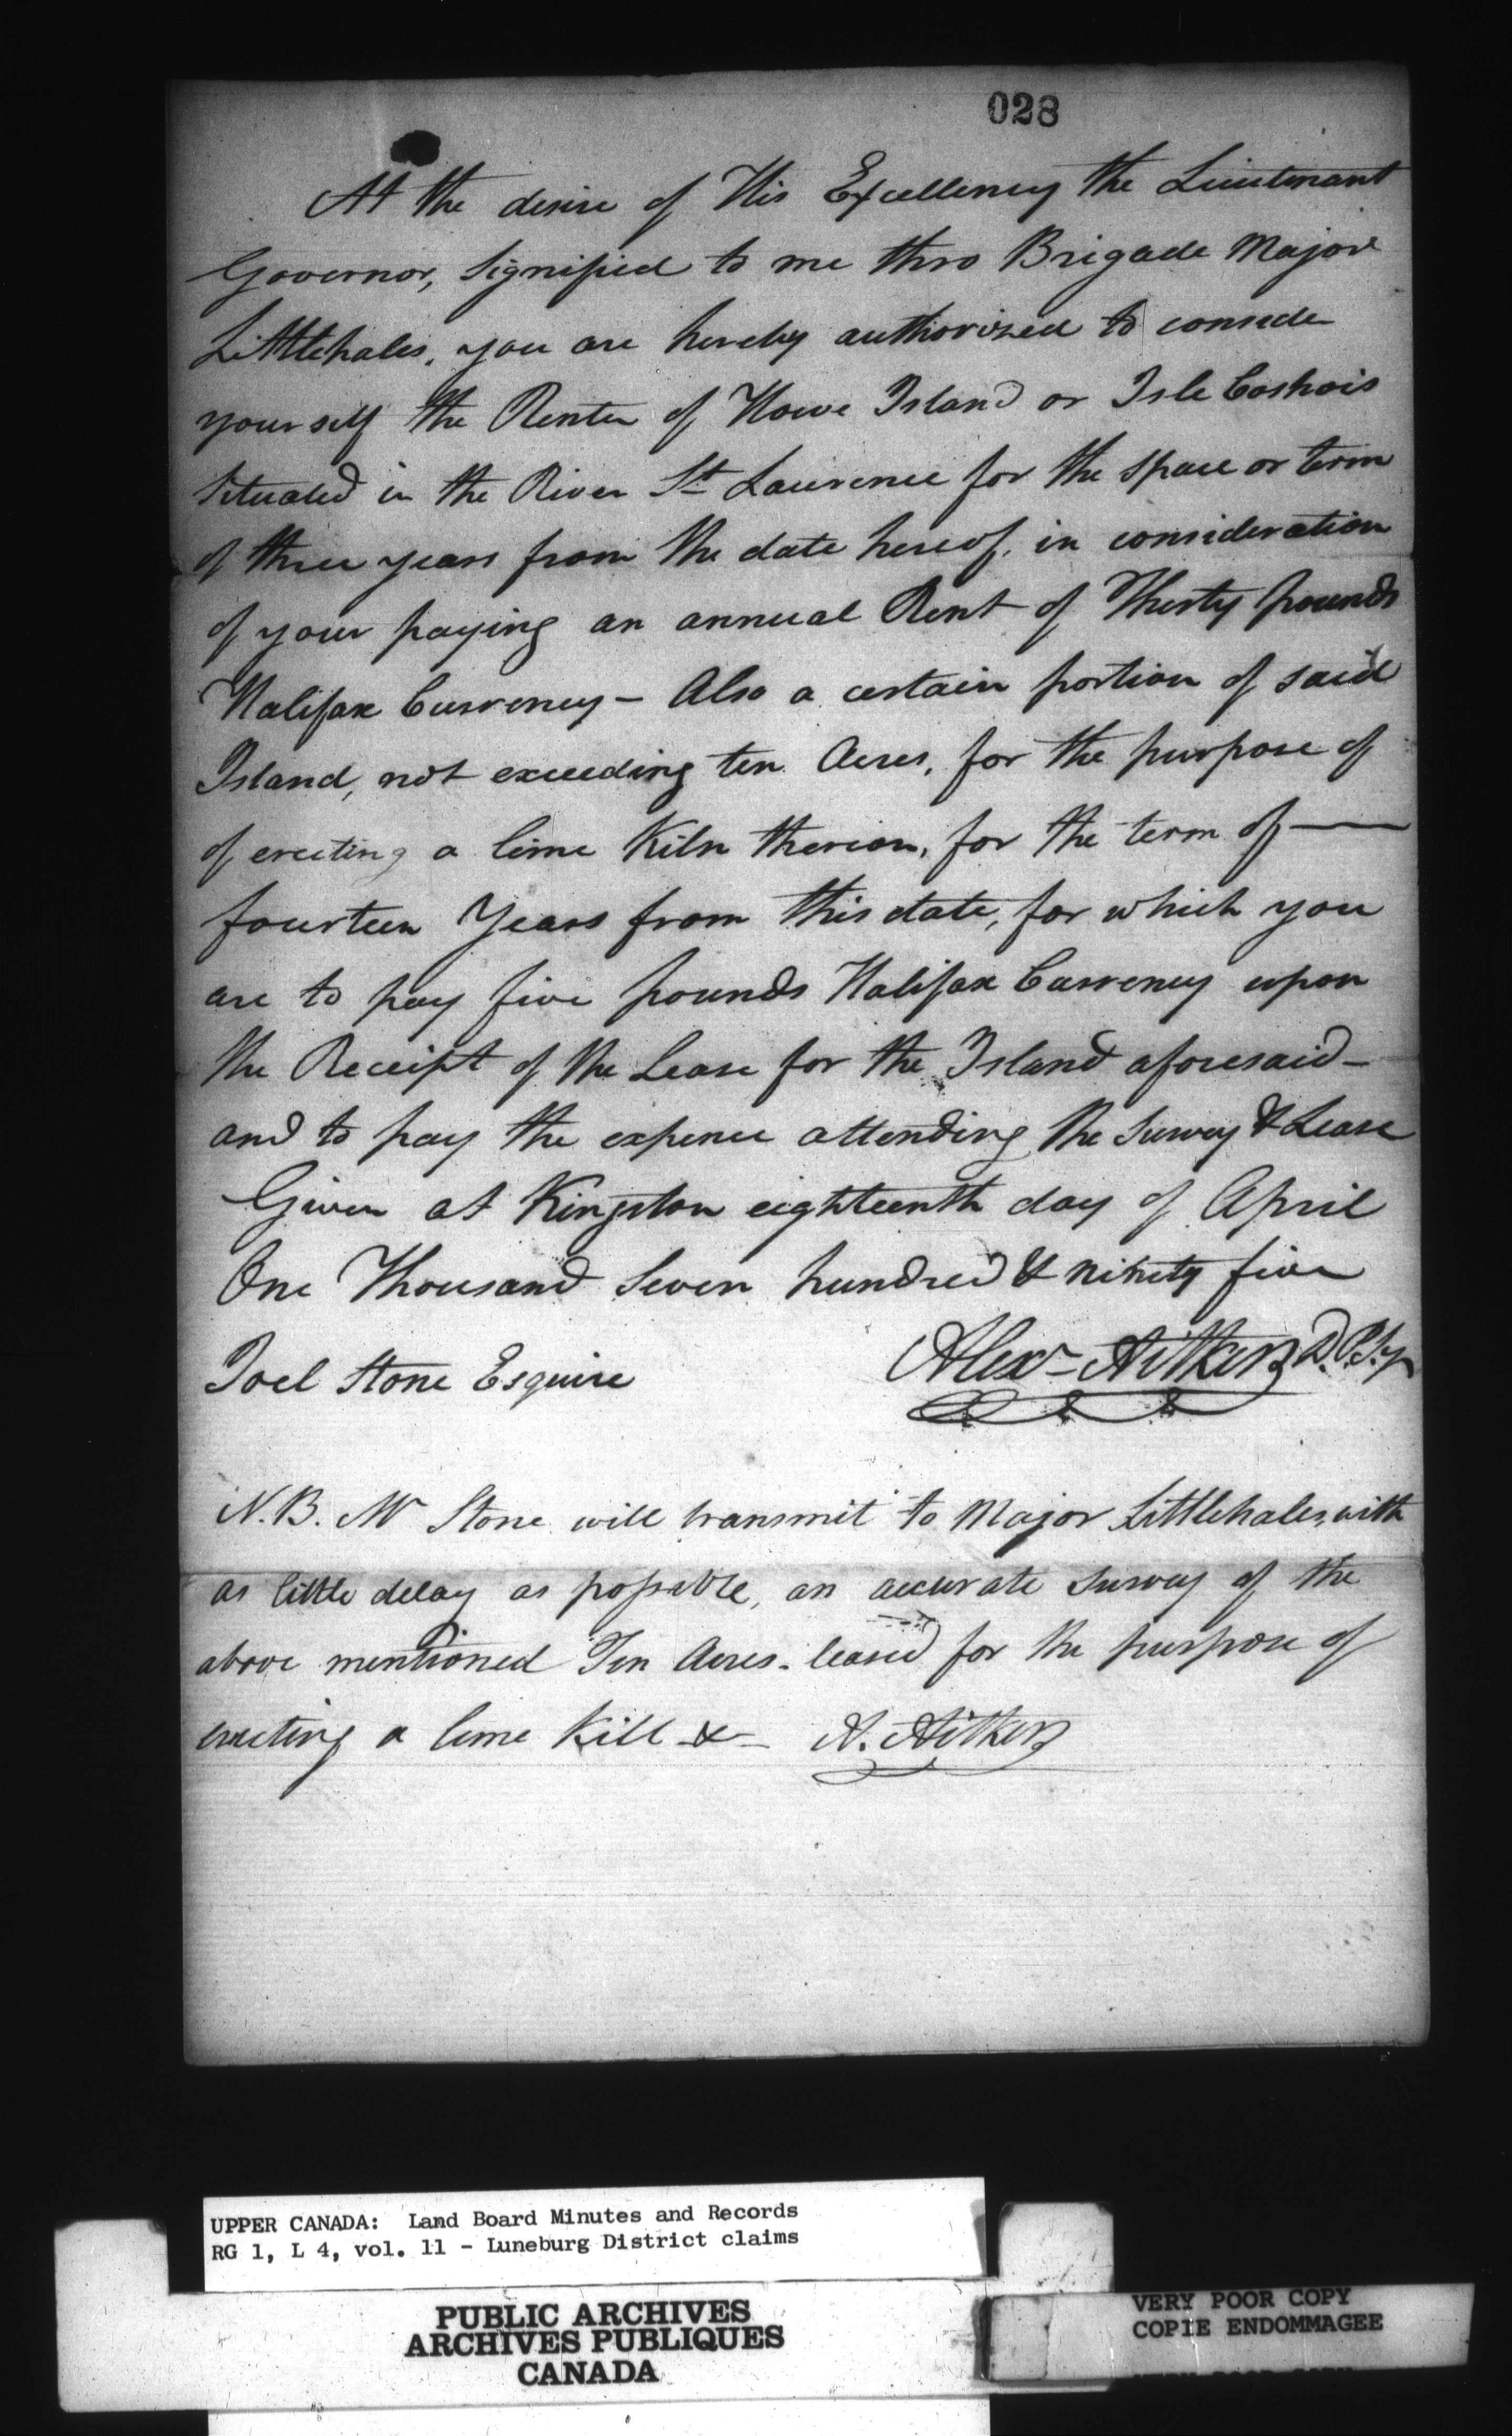 028
At the desire of His Excellency the Lieutenant
Governor, Signified to me thro Brigade Major
Littlehales, you are hereby authorized to conside
yourself the Renter of Howe Island or Isle Coshois
Situated in the River St Laurence for the space or term
of three years from the date hereof, in consideration
of your paying an annual Rent of Thirty pounds
Halifax Currency - Also a certain portion of said
Island, not exceeding ten Acres, for the purpose of
of erecting a lime Kiln thereon, for the term of —
fourteen Years from this date, for which you
are to pay five pounds Halifax Currency upon
the Receipt of the Lease for the Island aforesaid -
and to pay the expence attending the Survey & Lease
Given at Kingston eighteenth day of April
One Thousand Seven hundred & ninety five
Joel Stone Esquire
Alexr Aitken D.P.Sr
N.B. Mr Stone will transmit to Major Littlehales, with
as little delay as possible, an accurate Survey of the
above mentioned Ten Acres - leased for the purpose of
erecting a lime Kill &
A. Aitken
UPPER CANADA: Land Board Minutes and Records
RG 1, L 4, vol. 11 - Luneburg District claims
PUBLIC ARCHIVES
ARCHIVES PUBLIQUES
CANADA
VERY POOR COPY
COPIE ENDOMMAGEE